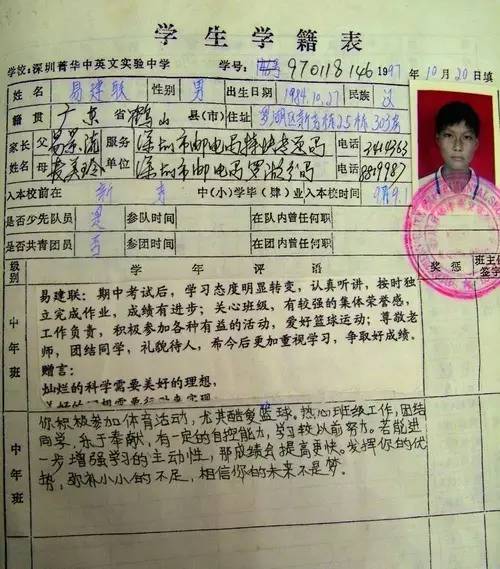 学生学籍表
学校:深圳菁华中英文实验中学 学号: 970118146 1997年10月20日填
姓名 易建联 性别 男 出生日期 1984.10.27 民族 汉
籍贯 广东省鹤山县(市) 住址 罗湖区新秀村25栋303房
家长姓名 父 易景流 服务单位 深圳市邮电局 电话 5414363
母 麦美玲 深圳市邮电局罗湖分局 电话
入本校前在 新秀 中(小)学毕(肄)业 入本校时间 97.9.1
是否少先队员 是 参队时间 在队内曾任何职
是否共青团员 否 参团时间 在团内曾任何职
级别 学年评语 奖惩 班主任签字
中年班
易建联:期中考试后,学习态度明显转变,认真听讲,按时独
立完成作业,成绩有进步;关心班级,有较强的集体荣誉感,
工作负责,积极参加各种有益的活动,爱好篮球运动;尊敬老
师,团结同学,礼貌待人,希今后更加重视学习,争取好成绩。
赠言:
灿烂的科学需要美好的理想,
美好的理想需要行动来实现
中年班
你积极参加体育活动,尤其酷爱篮球。热心班级工作,团结
同学,乐于奉献,有一定的自控能力,学习较以前努力。若能进
一步增强学习的主动性,那成绩会提高更快。发挥你的优
势,弥补小小的不足,相信你的未来不是梦。